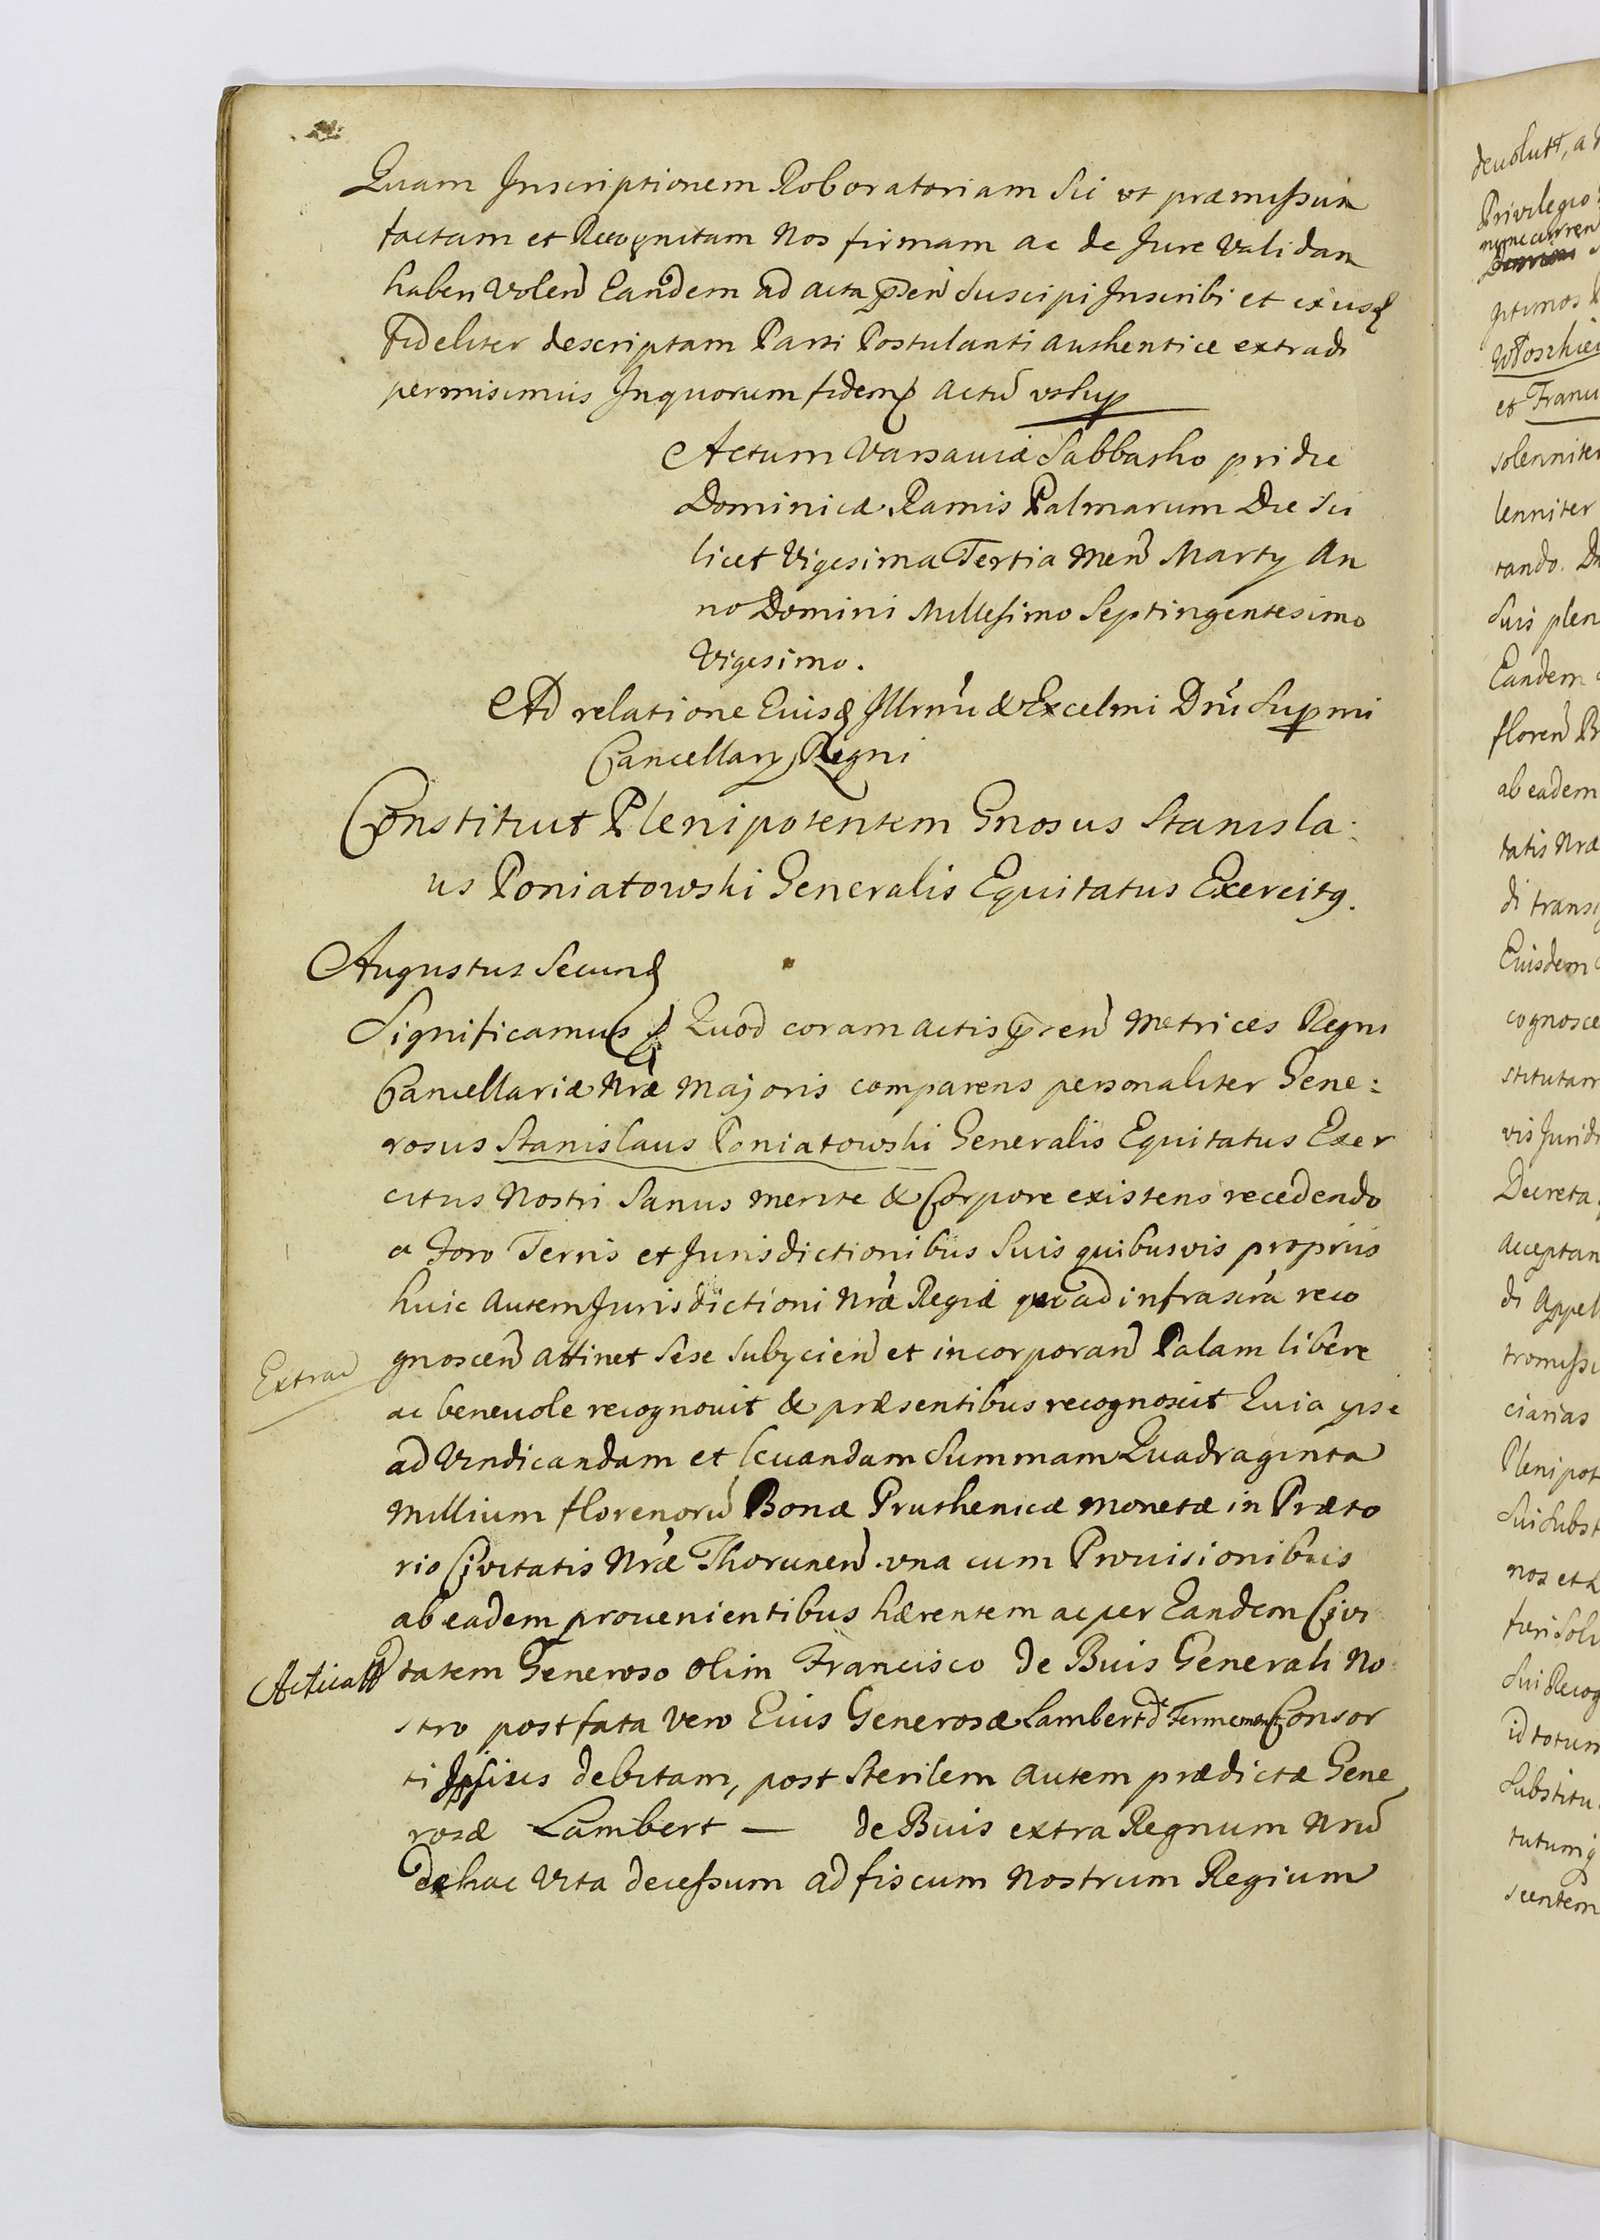 Quam Inscriptionem Roboratoriam Sic vt præmissum
factam et Recognitam Nos firmam ac de Jure validam
haben volen Eandem ad acta pñsen Suscipi Inscribi et exinde
fideliter descriptam Parti Postulanti authentice extradi
permisimus Inquorum fidem Actũ vt sup
Actum Varsaviæ Sabbatho pridie
Dominicæ Ramis Palmarum Die Sci
licet Vigesima Tertia Men Martÿ An
no Domini Millesimo Septingentesimo
Vigesimo.
Ad relatione Eiusd Illrmi & Excelmi Dni Supmi
Cancellarÿ Regni
Constituit Plenipotentem Gnosus Stanisla:
us Poniatowski Generalis Equitatus Exercitg.
Augustus Secund
Significamus Quod coram actis præsen Metrices Regni
Cancellariæ Nræ Majoris comparens personaliter Gene:
rosus Stanislaus Poniatowski Generalis Equitatus Exer
citus Nostri Sanus mente & Corpore existens recedendo
a Foro Terris et Jurisdictionibus Suis quibusvis proprÿs
huic autem Jurisdictioni Nræ Regiæ quoad infrascra reco
Extrad
gnoscen attinet Sese Subÿcien et incorporan Palam libere
ac beneuole recognouit & præsentibus recognoscit Quia ipse
ad Vindicandam et leuandam Summam Quadraginta
Millium florenorũ Bonæ Pruthenicæ Monetæ in Præto
rio Civitatis Nræ Thorunen vna cum Prouisionibus
ab eadem prouenientibus hærentem ac per Eandem Civi
Acticatt
tatem Generoso olim Francisco de Buis Generali No
stro post fata vero Eius Generosæ Lambert d Consor
ti Ipsius debitam, post Sterilem autem prædictæ Gene
rosæ Lambert — de Buis extra Regnum Nrũ
de hac Vita decessum ad fiscum Nostrum Regium
devolutt, a
Privilegio
ptimos
et Franci
solenniter
lenniter
tando. Dn
Suis plen
Eandem
floren Pr
ab eadem
tatis Nræ
di trans
Eiusdem
cognosce
stitutam
vis Juridi
Decreta
acceptan
di Appel
tromissi
ciarias
Plenipot
Sui Subst
nos et h
turi Solv
Sui Recog
id totum
Substitu
tutumq
scentem